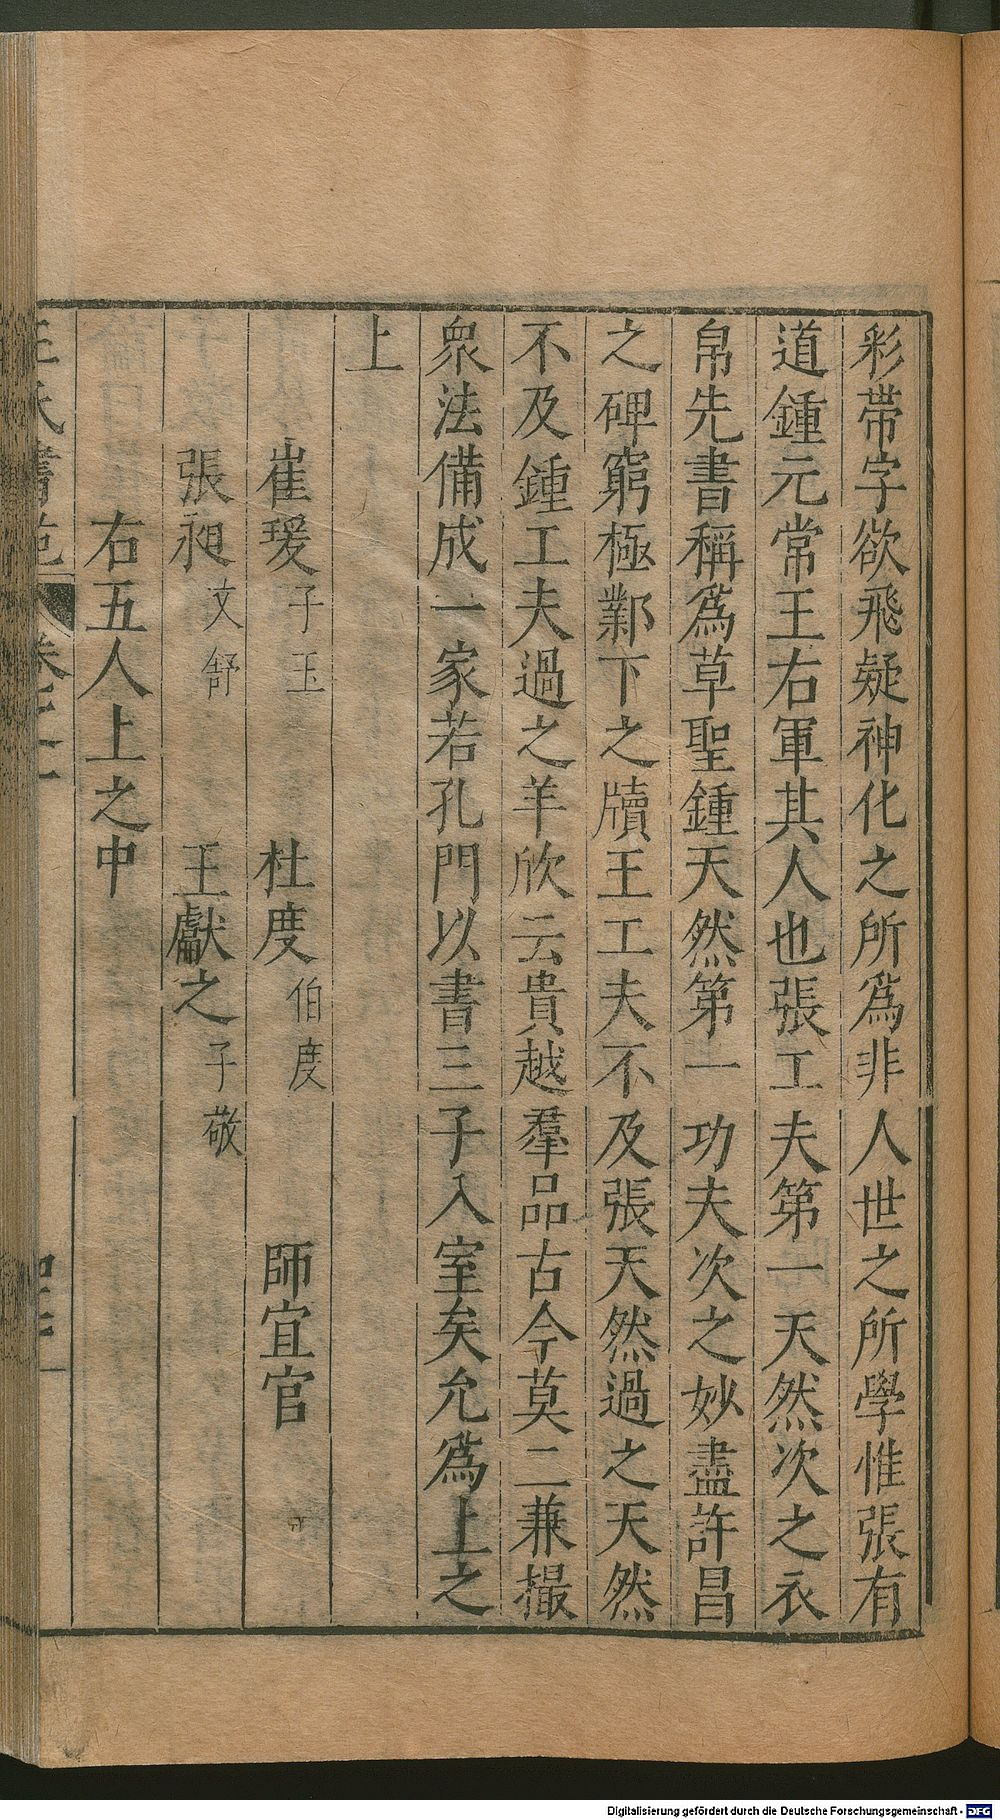 彩帶字欲飛疑神化之所爲非人世之所學惟張有
道鍾元常王右軍其人也張工夫第一天然次之衣
帛先書稱爲草聖鍾天然第一功夫次之妙盡許昌
之碑窮極鄴下之牘王工夫不及張天然過之天然
不及鍾工夫過之羊欣云貴越羣品古今莫二兼撮
衆法備成一家若孔門以書三子入室矣允爲上之
上
崔瑗子玉 杜度伯度 師宜官
張昶文舒 王獻之子敬
右五人上之中
王氏書苑 卷之
Digitalisierung gefördert durch die Deutsche Forschungsgemeinschaft - DFG